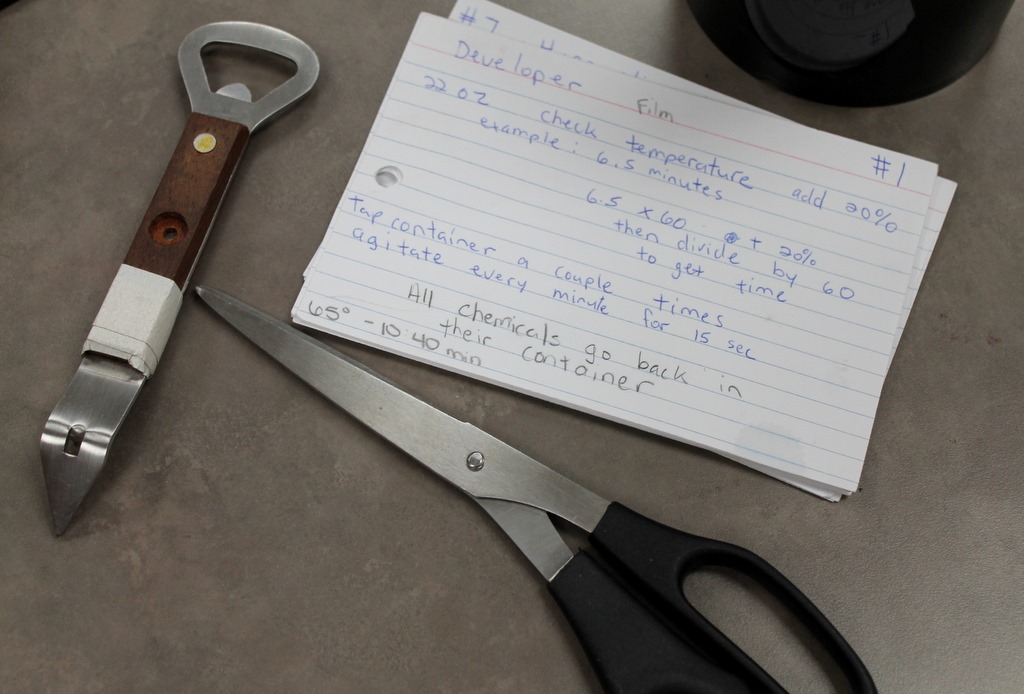 #7
Developer Film #1
22 oz check temperature add 20%
example: 6.5 minutes
6.5 x 60 + 20%
then divide by 60
to get time
Tap container a couple times
agitate every minute for 15 sec
All chemicals go back in
their container
65° - 10:40 min